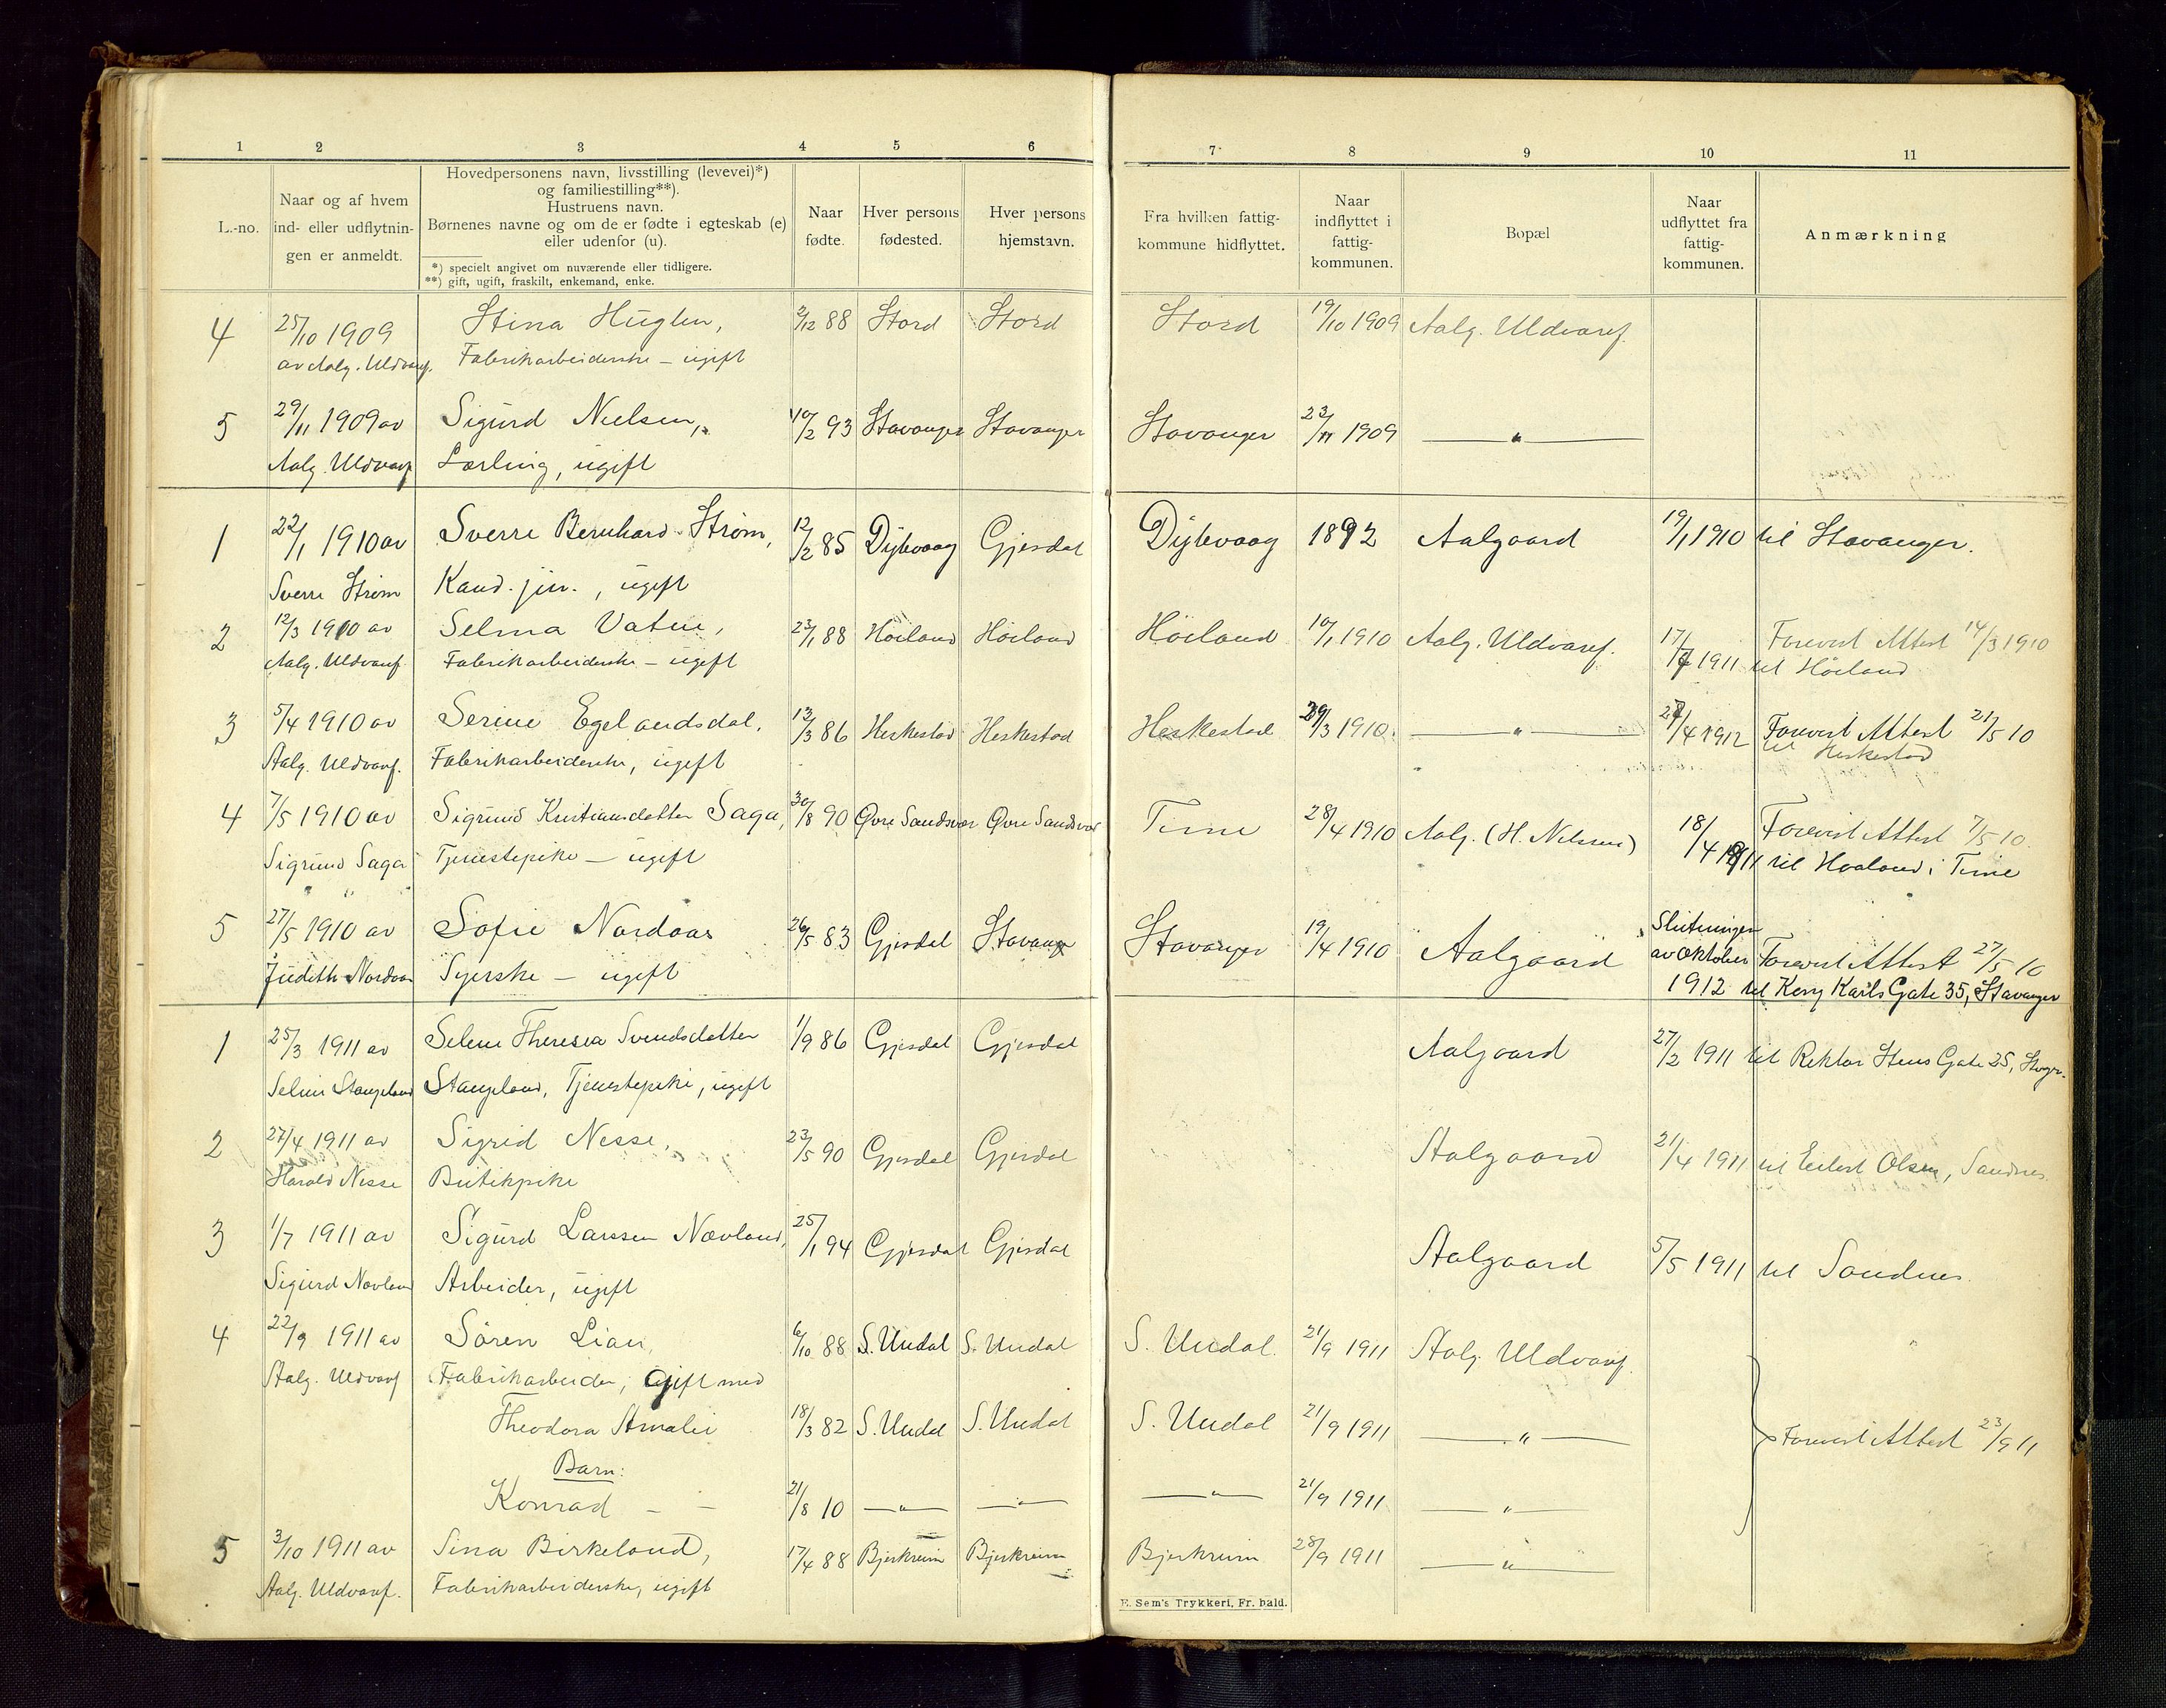 1 2 3 4 5 6 7 8 9 10 11
L.-no.
Naar og af hvem
ind- eller udflytnin-
gen er anmeldt.
Hovedpersonens navn, livsstilling (levevei)*)
og familiestilling**).
Hustruens navn.
Børnenes navne og om de er fødte i egteskab (e)
eller udenfor (u).
*) specielt angivet om nuværende eller tidligere.
**) gift, ugift, fraskilt, enkemand, enke.
Naar
fødte.
Hver persons
fødested.
Hver persons
hjemstavn.
Fra hvilken fattig-
kommune hidflyttet.
Naar
indflyttet i
fattig-
kommunen.
Bopæl
Naar
udflyttet fra
fattig-
kommunen.
Anmærkning
4 25/10 1909 Stina Huglen, 2/12 88 Stord Stord Stord 19/10 1909 Aalg. Uldvaref.
av Aalg. Uldvarf. Fabrikarbeiderske – ugift
5 29/11 1909 av Sigurd Nielsen, 10/2 93 Stavanger Stavanger Stavanger 23/11 1909 — " —
Aalg. Uldvarf Lærling, ugift
1 22/1 1910 av Sverre Bernhard Strøm, 12/2 85 Dybvaag Gjesdal Dybvaag 1892 Aalgaard 19/1 1910 til Stavanger.
Sverre Strøm Kand. jur., ugift
2 12/3 1910 av Selma Vatne, 23/1 88 Høiland Høiland Höiland 10/1 1910 Aalg. Uldvaref. 17/7 1911 Forevist Attest 14/3 1910
Aalg. Uldvarf. Fabrikarbeiderske – ugift til Höiland
3 5/4 1910 av Serine Egelandsdal, 13/3 86 Heskestad Heskestad Heskestad 29/3 1910. — " — 27/4 1912 Forevist Attest 21/5 10
til Heskestad
Aalg. Uldvarf. Fabrikarbeiderske, ugift
4 7/5 1910 av Sigrund Kristiansdatter Saga, 30/8 90 Øvre Sandsvær Øvre Sandsvær Time 28/4 1910 Aalg. (H. Nelssen) 18/4 1911 Forevist Attest 7/5 10.
Sigrund Saga Tjenestepike – ugift til Haaland i Time
5 27/5 1910 av Sofie Nordaas 26/5 83 Gjesdal Stavanger Stavanger 19/4 1910 Aalgaard Slutningen
av Oktober Forevist Attest 27/5 10
Judith Nordaas Syerske – ugift 1912 til Kong Karls Gate 35, Stavanger
1 25/3 1911 av Selene Theresea Svendsdatter 1/9 86 Gjesdal Gjesdal Aalgaard 27/2 1911 til Rektor Stens Gate 25, Stvgr.
Selene Stangeland Stangeland, Tjenestepike, ugift
2 27/4 1911 av Sigrid Nesse, 23/5 90 Gjesdal Gjesdal Aalgaard 21/4 1911 til Eilert Olsen, Sandnes
Harald Nesse Butikpike
3 1/7 1911 av Sigurd Larssen Nævland, 25/1 94 Gjesdal Gjesdal Aalgaard 5/5 1911 til Sandnes.
Sigurd Nævland Arbeider, ugift
4 22/9 1911 av Sören Lian, 6/10 88 S. Undal S. Undal S. Undal. 21/9 1911 Aalg. Uldvarf.
Aalg. Uldvarf Fabrikarbeider, Gift med
Theodora Amalie 18/3 82 S. Undal S. Undal S. Undal 21/9 1911 — " — Forevist Attest 23/9 11
Barn:
Konrad – – 21/8 10 — " — — " — — " — 21/9 1911 — " —
5 3/10 1911 av Sina Birkeland, 17/4 88 Bjerkreim Bjerkreim Bjerkreim 28/9 1911 — " —
Aalg. Uldvarf. Fabrikarbeiderske, ugift
E. Sem's Trykkeri, Fr. hald.